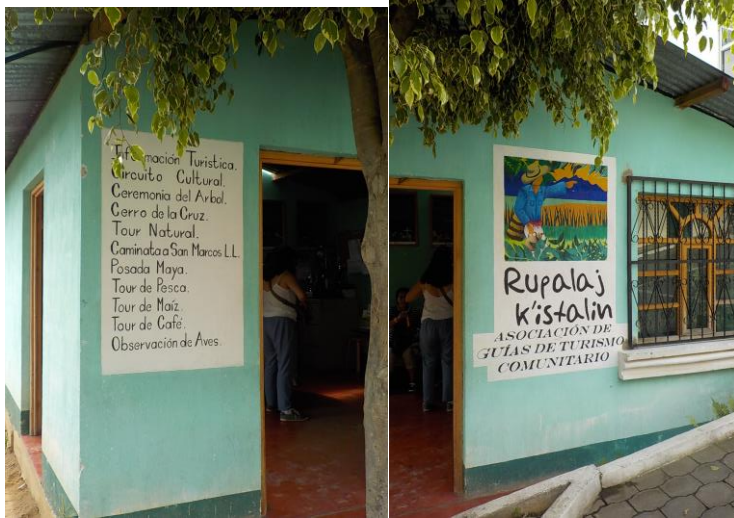 Información Turistica.
Circuito Cultural.
Ceremonia del Arbol.
Cerro de la Cruz.
Tour Natural.
Caminata a San Marcos L.L.
Posada Maya.
Tour de Pesca.
Tour de Maíz.
Tour de Café.
Observación de Aves.
Rupalaj
K'istalin
ASOCIACIÓN DE
GUÍAS DE TURISMO
COMUNITARIO